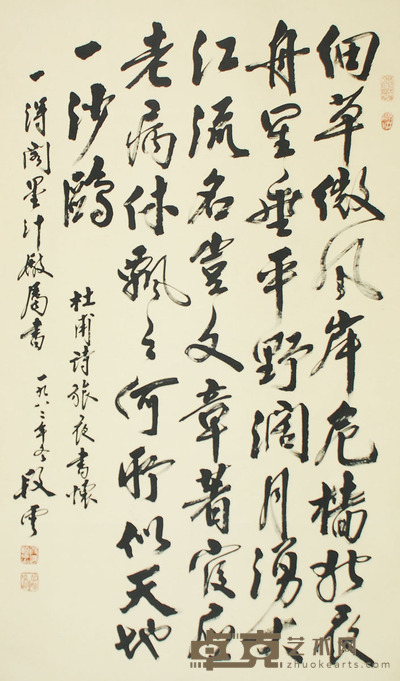 细草微风岸危樯独夜
舟星垂平野阔月湧大
江流名岂文章著官应
老病休飘々何所似天地
一沙鸥
杜甫诗旅夜书怀
一得阁墨汁厰属书
一九八三年冬 段云
卓克艺术网
zhuokearts.com